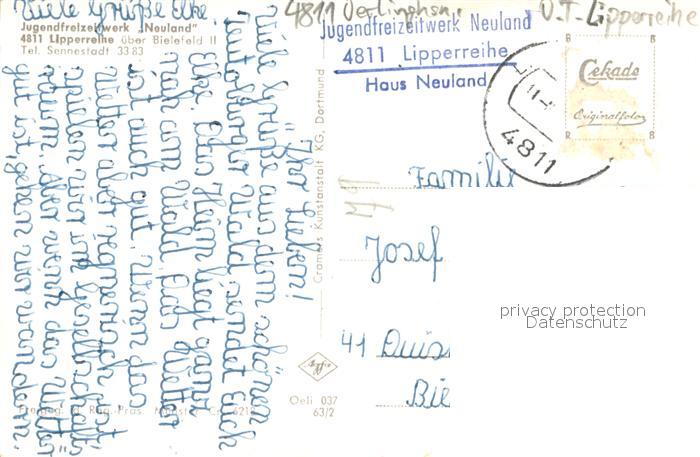 Viele Grüße Elke.
4811 Oerlinghsn.
O.T. Lipperreihe
Jugendfreizeitwerk "Neuland"
4811 Lipperreihe über Bielefeld II
Tel. Sennestadt 33 83
Jugendfreizeitwerk Neuland
4811 Lipperreihe
Haus Neuland
Cekade
Originalfoto
4811
Ihr Lieben!
Viele Grüße aus dem schönen
Teutoburger Wald sendet Euch
Elke. Das Heim liegt ganz
nah am Wald. Das Wetter
ist auch gut. Wenn das
Wetter aber regnerisch ist
spielen wir im Gesellschafts-
raum. Aber wenn das Wetter
gut ist, gehen wir wandern.
Cramers Kunstanstalt KG, Dortmund
Familie
Josef
41 Duis
Bie
privacy protection
Datenschutz
Agfa
Oeli 037
63/2
Freigeg. d. Reg.-Präs. Münster